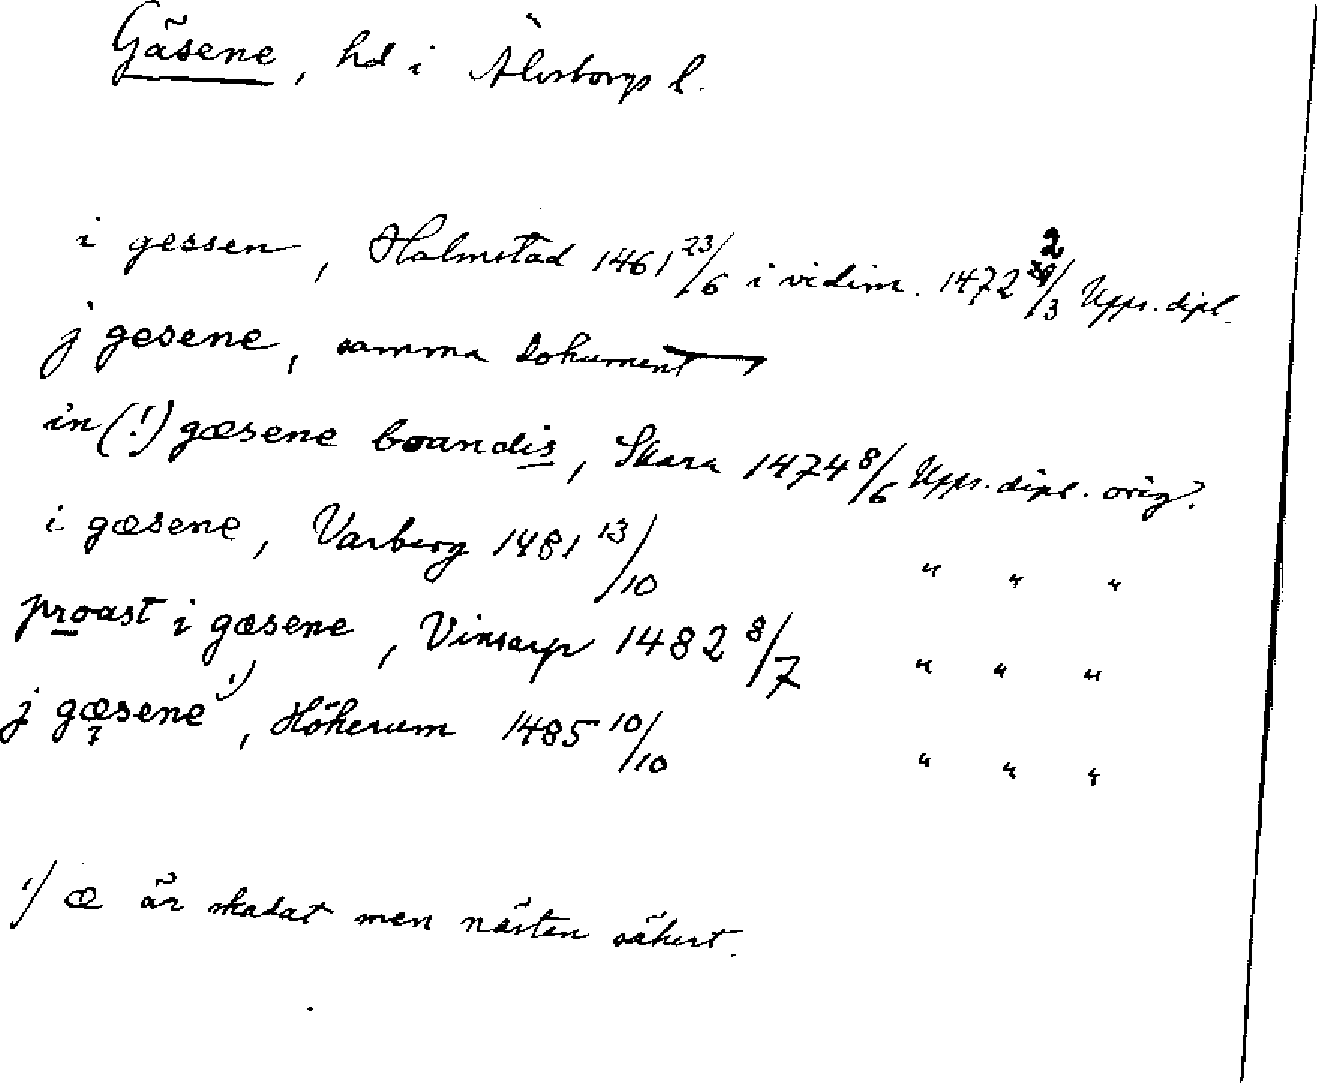 Gäsene, hd i Älvsborgs l.
i gessen, Halmstad 1461 23/6 i vidim. 1472 2/3 Upps. dipl.
j gesene, samma dokument
in(!) gæsene boandis, Skara 1474 8/6 Upps. dipl. orig.
i gæsene, Varberg 1481 13/10 " " "
proast i gæsene, Vinsarp 1482 8/7 " " "
j gæsene 1), Hökerum 1485 10/10 " " "
1) æ är skadat men nästen säkert.